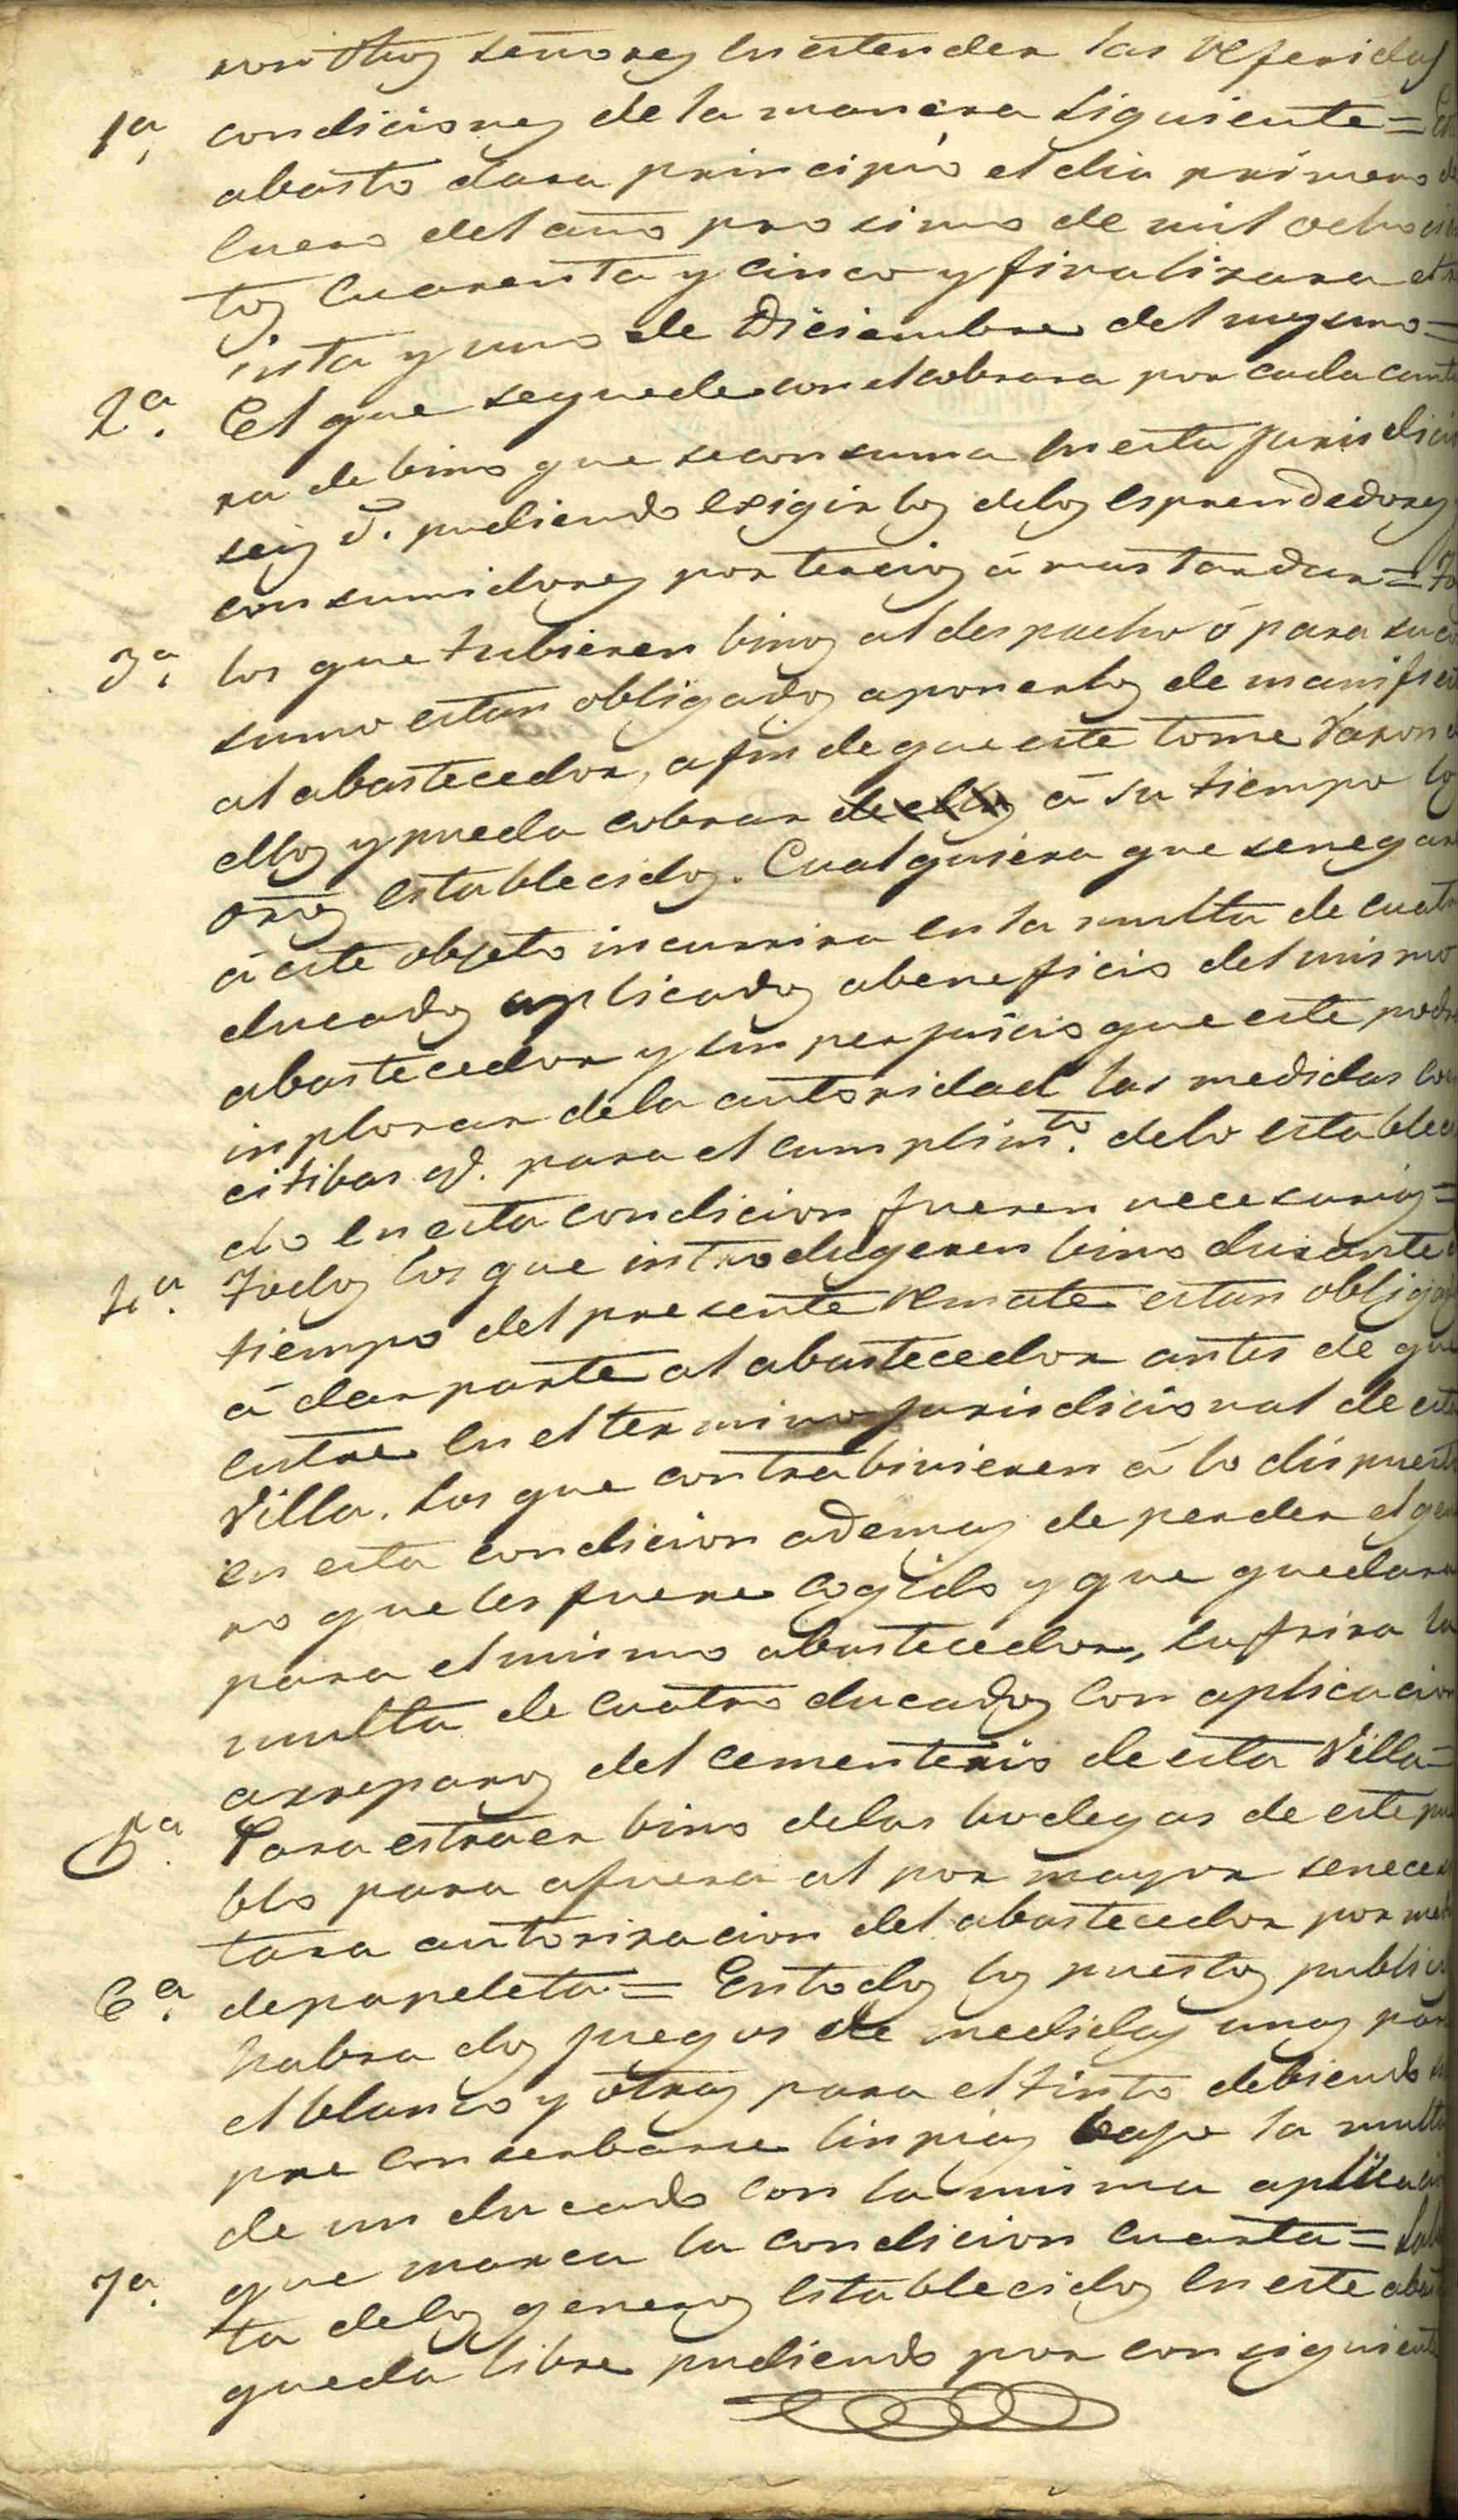 dhos señores en estender las referidas
1ª, condiciones de la manera siguiente =
abasto dara principio el dia primero de
Enero del año prosimo de mil ochocien
tos cuarenta y cinco y finalizara el tr
inta y uno de Diciembre del mysmo =
2ª. El que se quede con el cobrara por cada canta
ra de bino que se consuma en esta jurisdicion
seis rs. pudiendo exigirlos delos esprendedores
consumidores por tercios á mas tardar = To
3ª. los que tubieren binos al despacho ó para su con
sumo estan obligados aponerlos de manifies
al abastecedor, a fin de que este tome razon de
ellos y pueda cobrar de ellos á su tiempo los
drõs establecidos. Cualquiera que senegare
á este objeto incurrira en la multa de cuatro
ducados aplicados abeneficio del mismo
abastecedor y sin perjuicio que este podra
inplorar dela autoridad las medidas coer
citibas q. para el cumplimto. delo estableci
do en esta condicion fueren necesarias =
4ª. Todos los que introdugeren bino durante el
tiempo del presente remate estan obligados
á dar parte al abastecedor antes de que
entre en el termino jurisdicional de esta
Villa. Los que contrabinieren á lo dispuesto
en esta condicion ademas de perder el gene
ro que les fuere cogido y que quedara
para el mismo abastecedor, sufrira la
multa de cuatro ducados con aplicacion
arreparos del cementerio de esta Villa =
5ª. Para estraer bino delas bodegas de este pue
blo para afuera al por mayor seneces
tara autorizacion del abastecedor por medio
6ª. depapeleta = En todos los puestos publicos
habra dos juegos de medidas unas para
el blanco y otras para el tinto debiendo siem
pre conserbarse linpias bajo la multa
de un ducado con la misma aplicacion
que marca la condicion cuarta = La
7ª. ta delos generos establecidos en este abas
queda libre pudiendo por consiguiente